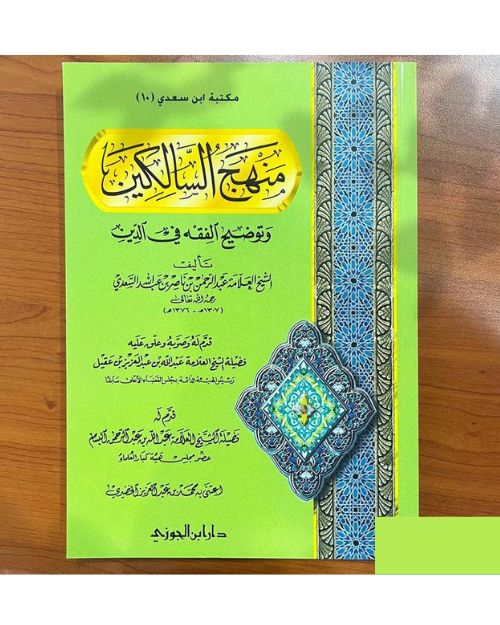 مكتبة ابن سعدي (١٠)
منهج السالكين
وتوضيح الفقه في الدين
تأليف
الشيخ العلامة عبد الرحمن بن ناصر بن عبد الله السعدي
رحمه الله تعالى
(١٣٠٧هـ - ١٣٧٦هـ)
قدم له وصوبه وعلق عليه
فضيلة الشيخ العلامة عبد الله بن عبد العزيز بن عقيل
رئيس الهيئة الدائمة بمجلس القضاء الأعلى سابقا
قدم له
فضيلة الشيخ العلامة عبد الله بن عبد الرحمن البسام
عضو مجلس هيئة كبار العلماء
اعتنى به محمد بن عبد العزيز الخضيري
دار ابن الجوزي